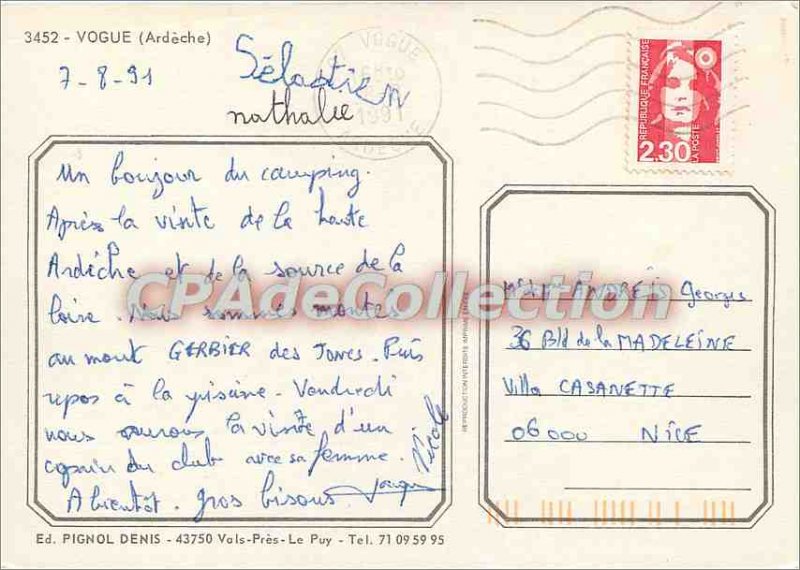 3452 - VOGUE (Ardèche)
7-8-91
Sébastien
nathalie
VOGUE
1991
ARDECHE
REPUBLIQUE FRANÇAISE
LA POSTE
2.30
Un bonjour du camping.
Après la visite de la haute
Ardèche et de la source de la
loire. Nous sommes montés
au mont GERBIER des Joncs. Puis
repos à la piscine. Vendredi
nous aurons la visite d'un
copain du club avec sa femme.
A bientôt. gros bisous
Nicole
CPAdeCollection
REPRODUCTION INTERDITE IMPRIME EN CEE
ANDREÏS Georges
36 Bld de la MADELEINE
Villa CASANETTE
06000 NICE
Ed. PIGNOL DENIS - 43750 Vals-Près-Le Puy - Tel. 71 09 59 95